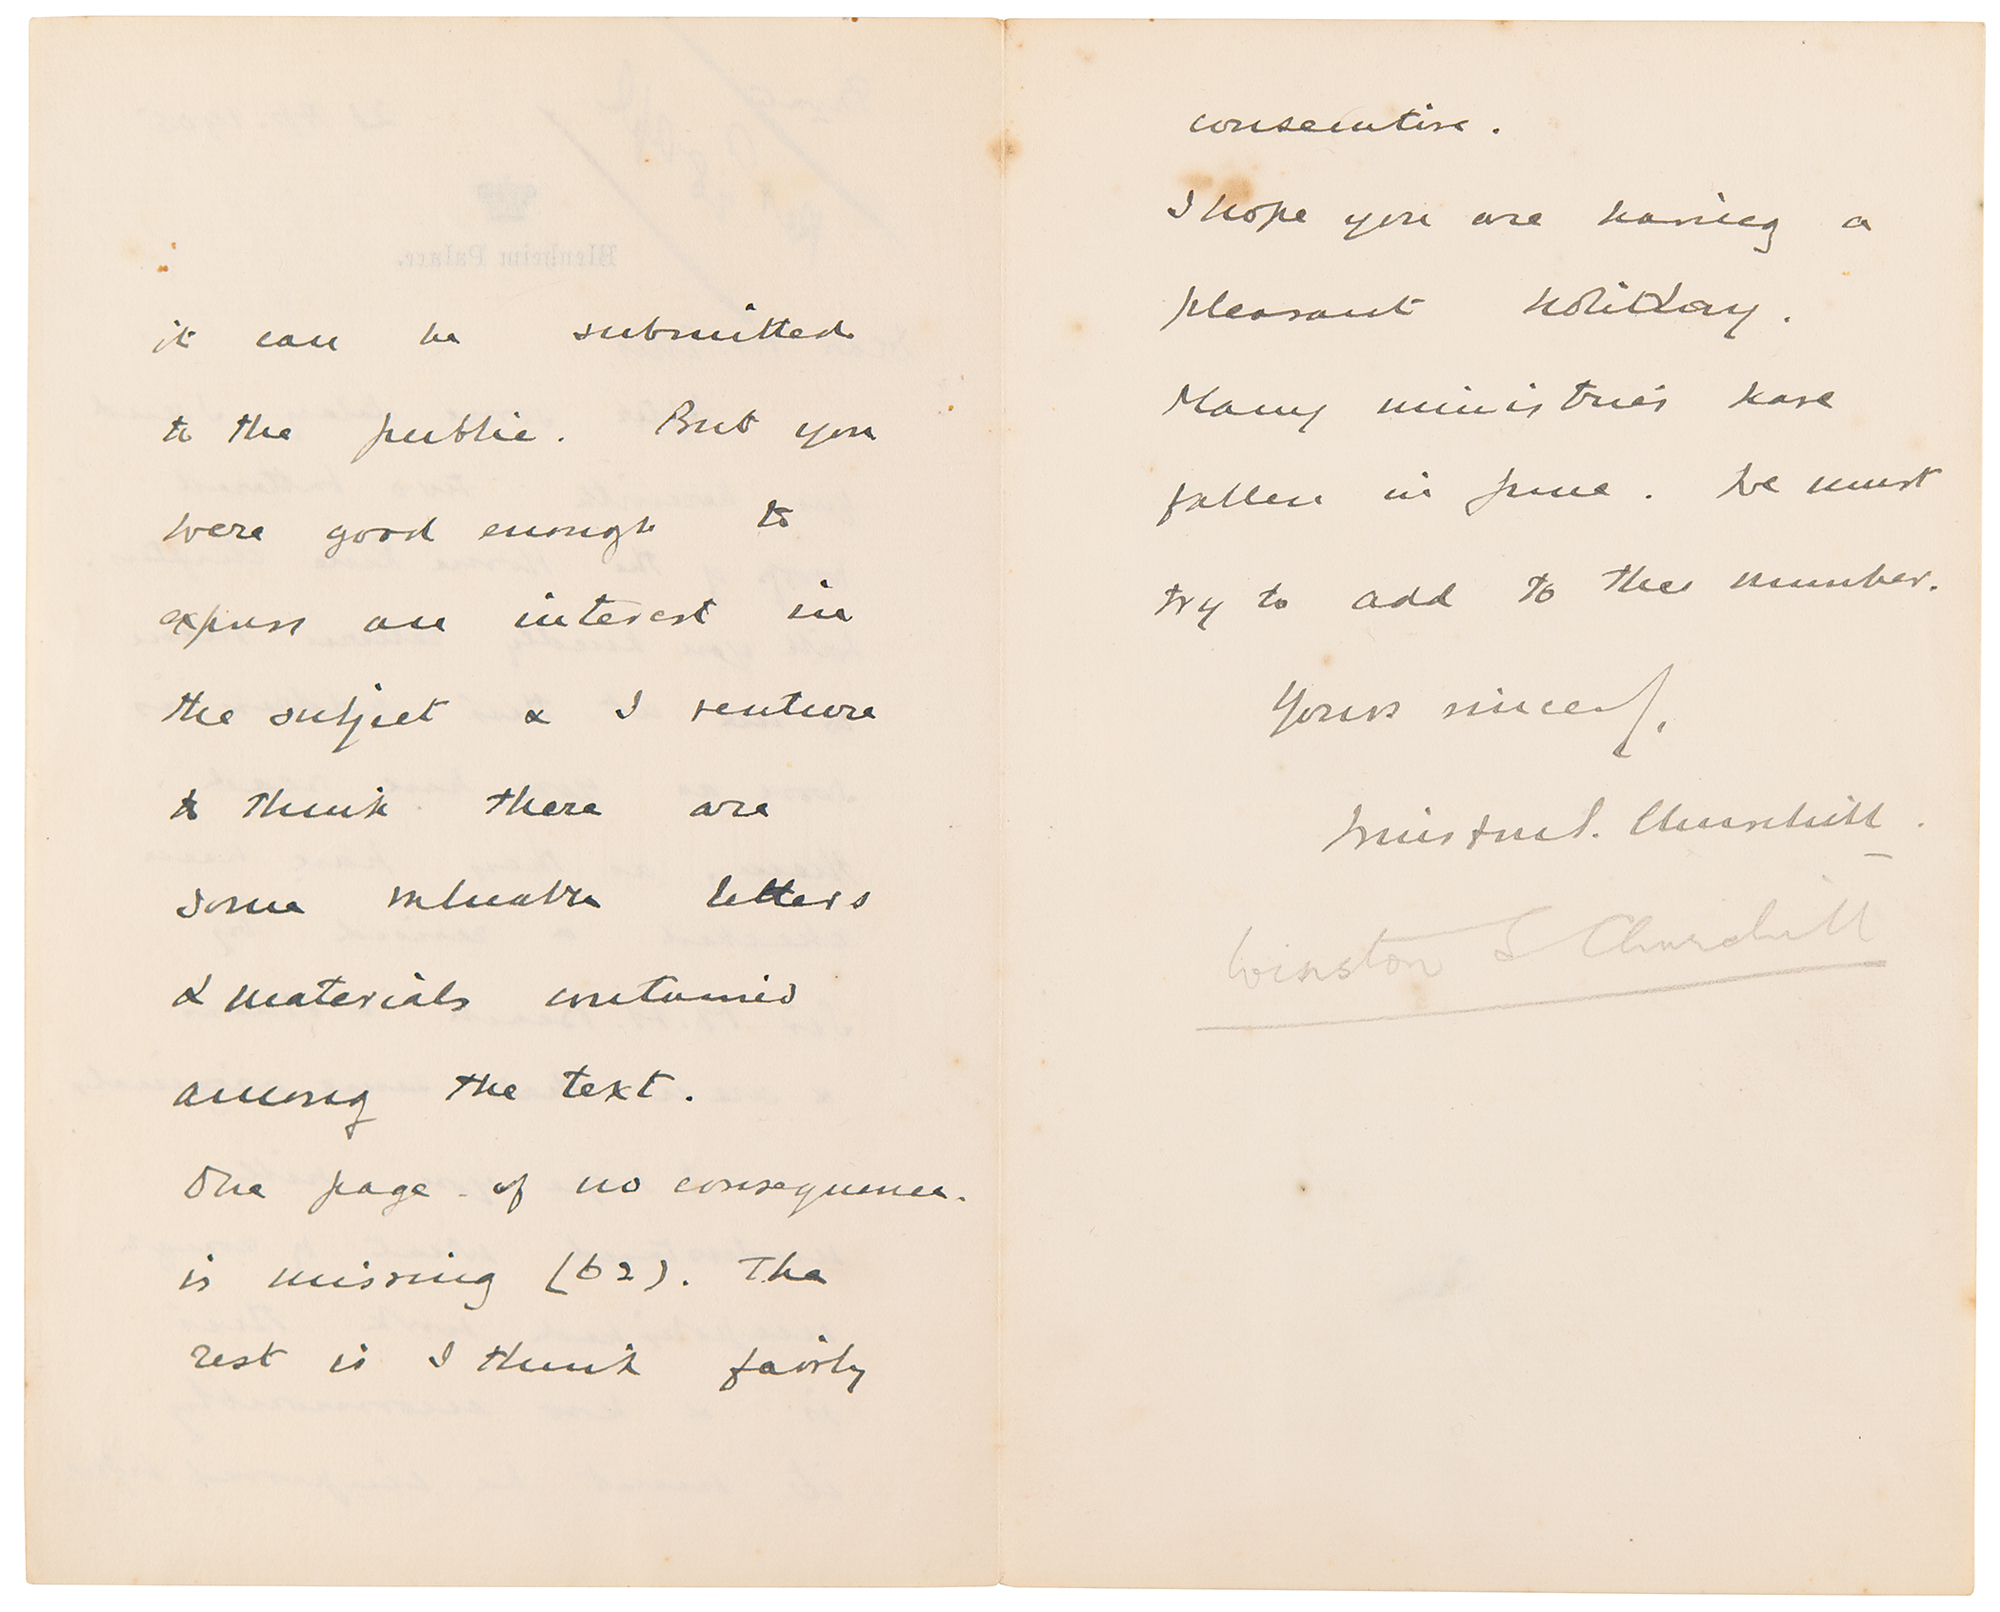 Blenheim Palace.
it can be submitted
to the public. But you
were good enough to
express an interest in
the subject & I venture
to think there are
some valuable letters
& materials contained
among the text.
One page - of no consequence -
is missing (62). The
rest is I think fairly
consecutive.
I hope you are having a
pleasant holiday.
Many ministries have
fallen in June. We must
try to add to their number.
Yours sincerely,
Winston S. Churchill.
Winston S Churchill